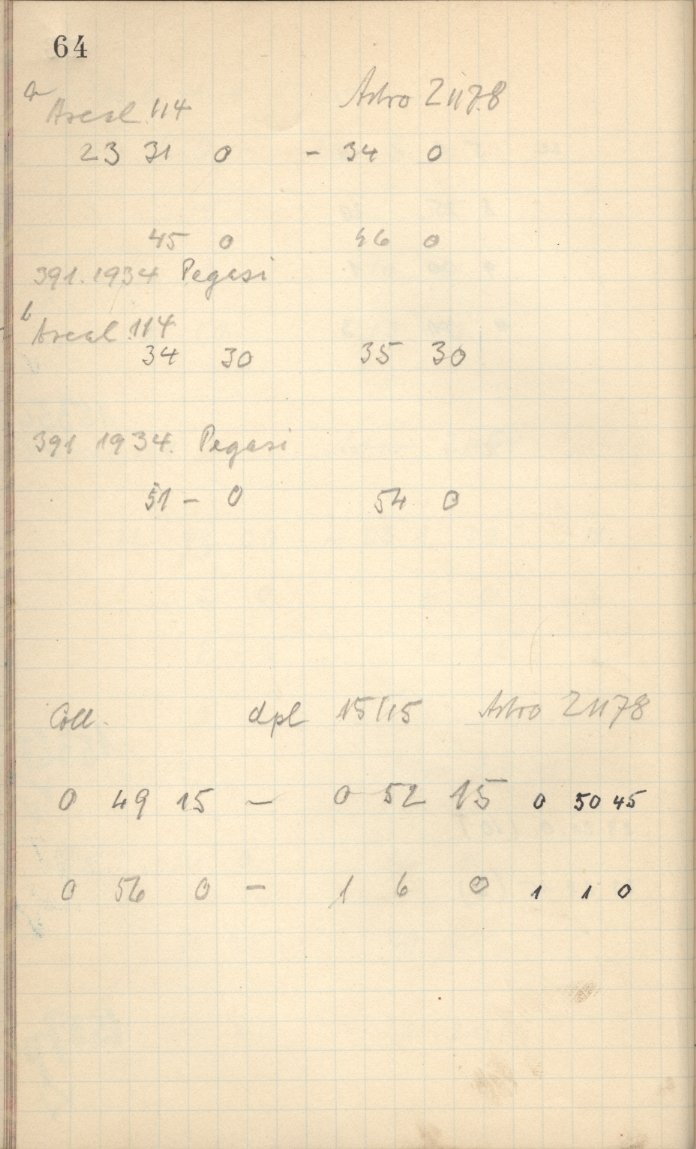 64
a Areal 114 Astro 21178
23 31 0 - 34 0
45 0 46 0
391.1934 Pegasi
b Areal 114
34 30 35 30
391 1934. Pegasi
51 - 0 54 0
Coll. dpl 15/15 Astro 21178
0 49 15 - 0 52 15 0 50 45
0 56 0 - 1 6 0 1 1 0